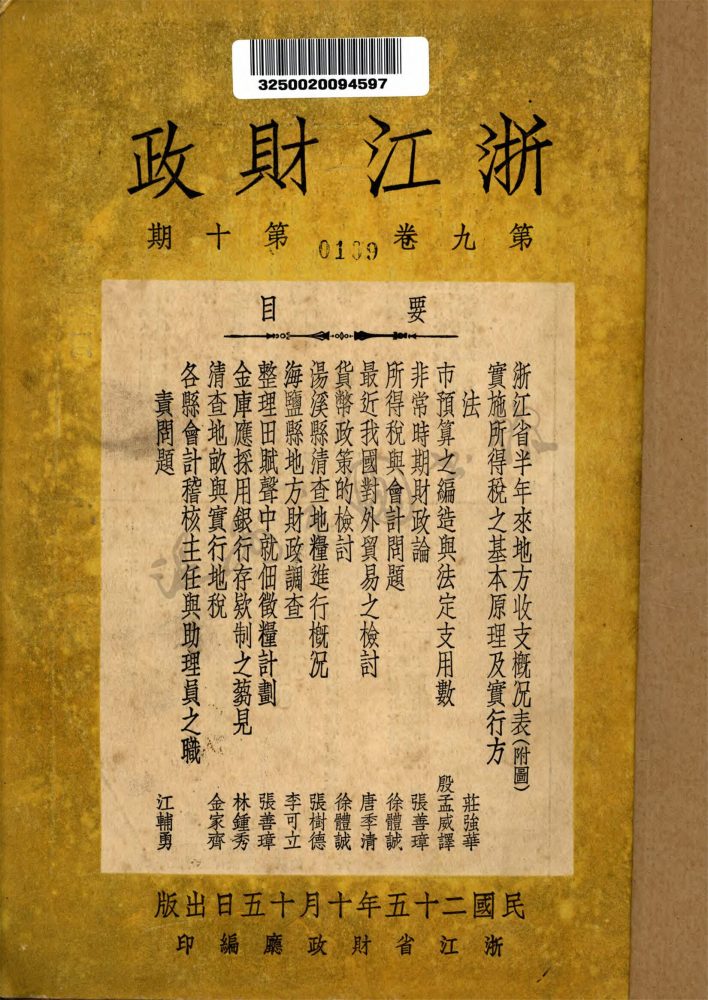 3250020094597
浙江財政
第九卷 第十期
0109
要目
浙江省半年來地方收支概况表(附圖)
實施所得稅之基本原理及實行方
法 莊強華
市預算之編造與法定支用數 殷孟威譯
非常時期財政論 張善璋
所得稅與會計問題 徐體誠
最近我國對外貿易之檢討 唐季清
貨幣政策的檢討 徐體誠
湯溪縣清查地糧進行概况 張樹德
海鹽縣地方財政調查 李可立
整理田賦聲中就佃徵糧計劃 張善璋
金庫應採用銀行存欵制之蒭見 林鍾秀
清查地畝與實行地稅 金家齊
各縣會計稽核主任與助理員之職
責問題 江輔勇
民國二十五年十月十五日出版
浙江省財政廳編印